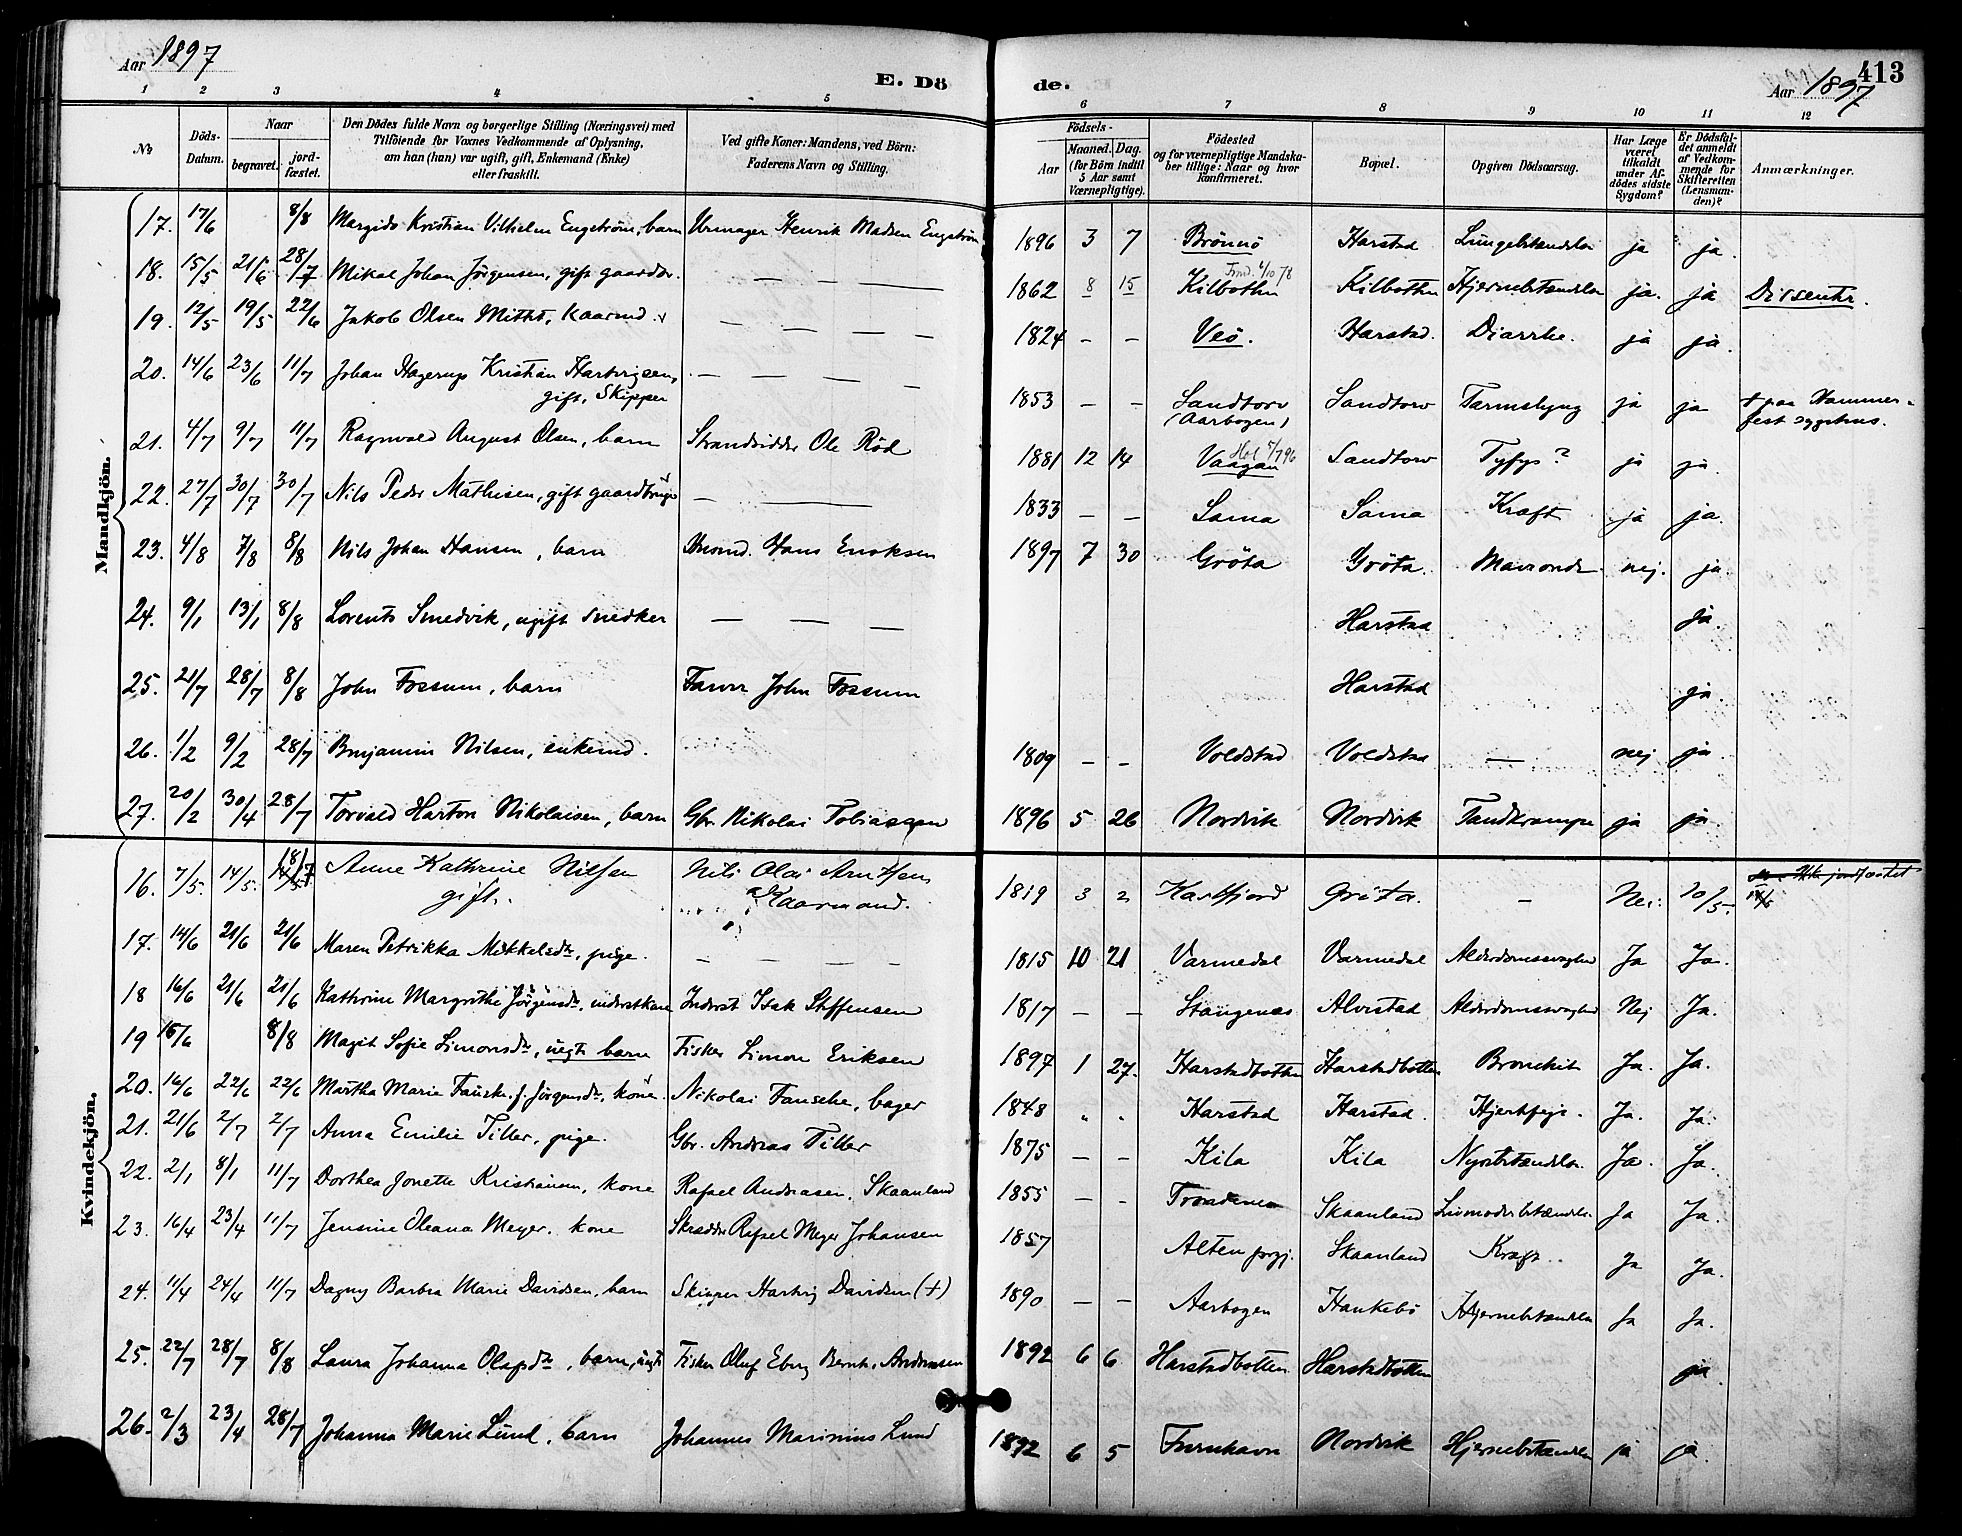 Aar 1897
E. Döde.
Aar 1897
413
1 2 3 4 5 6 7 8 9 10 11 12
No
Döds-Datum.
Naar
begravet.
jord-fæstet.
Den Dödes fulde Navn og borgerlige Stilling (Næringsvei) med
Tilföiende for Voxnes Vedkommende af Oplysning,
om han (hun) var ugift, gift, Enkemand (Enke)
eller fraskilt.
Ved gifte Koner: Mandens, ved Börn:
Faderens Navn og Stilling.
Födsels-
Aar
Maaned. Dag.
(for Börn indtil
5 Aar samt
Værnepligtige).
Födested
og for værnepligtige Mandska-
ber tillige: Naar og hvor
konfirmeret.
Bopæl.
Opgiven Dödsaarsag.
Har Læge
været
tilkaldt
under Af-
dödes sidste
Sygdom?
Er Dödsfal-
det anmeldt
af Vedkom-
mende for
Skifteretten
(Lensman-
den)?
Anmærkninger.
Mandkjön.
17. 17/6 8/8 Margido Kristian Vilhelm Engström, barn Urmager Henrik Madsen Engström 1896 3 7 Brönnö Harstad ja ja.
18. 15/5 21/6 28/7 Mikal Johan Jörgensen, gift gaardbr. — — — — 1862 8 15 Kilbotten Kilbotten Hjernebetændelse ja. ja
19. 12/5 19/5 22/6 Jakob Olsen — — — — 1824 — — Veö. Harstad. Diarrhe. ja ja.
20. 14/6 23/6 11/7 Johan Hagerup Kristian Hartvigsen, — — — — 1853 — — Sandtorv Sandtorv ja ja † paa Hammer-
gift, Skipper (Aarbogen) fest sygehus.
21. 4/7 9/7 11/7 Ragnvald August Olsen, barn Strandsidder Ole Röd 1881 12 14 Vaagan Sandtorv Tyfus? ja ja.
22. 27/7 30/7 30/7 Nils Peder Mathisen, gift gaardbruger — — 1833 — — Sama Sama Kræft ja ja.
23. 4/8 7/8 8/8 Nils Johan Hansen, barn Hans Enoksen 1897 7 30 Gröta Gröta. nej. ja.
24. 9/1 13/1 8/8 Lorents Smedvik, ugift snedker — — — Harstad ja.
25. 21/7 28/7 8/8 John Fossum, barn Farver John Fossum Harstad ja.
26. 1/2 9/2 28/7 Benjamin Nilsen, enkemd. 1809 — — Voldstad Voldstad — nej ja
27. 20/2 30/4 28/7 Torvald Harton Nikolaisen, barn Gbr. Nikolai Tobiassen 1896 5 26 Nordvik Nordvik Tandkrampe ja ja
Kvindekjön.
16. 7/5. 14/5. 18/7 Anne Kathrine Nilsen Nils Olai Arntsen 1819 3 2 Kastfjord Gröta. — Nei. 20/5.
gift. Kaarmand.
17. 14/6 21/6 21/6 Maren Petrikka Mikkelsdtr, pige. — — — — 1815 10 21 Varmedal Varmedal Alderdomssvaghed Ja Ja.
18 16/6 21/6 21/6 Kathrine Margrethe Jörgensdtr, inderstkone Inderst Isak Steffensen 1817 — — Stangenæs Alvestad Alderdomssvaghed Nej Ja.
19 15/6 8/8 Magit Sofie Simonsdtr, uegte barn Fisker Simon Eriksen 1897 1 27. Harstadbotten Harstadbotten Bronchit Ja. Ja.
20. 16/6 22/6 22/6 Martha Marie Fauske f. Jörgensdtr, kone. Nikolai Fauske, bager 1848 " " Harstad Harstad. Hjertfejl. Ja. Ja.
21. 21/6 2/7 2/7 Anna Emilie Tiller, pige. Gbr. Andreas Tiller 1875 — — Kila Kila Nyrebetændelse Ja. Ja.
22. 2/1 8/1 11/7 Dorthea Jonette Kristiansen, kone Rafael Andreasen, Skaanland 1855 — — Trondenes Skaanland Livmoderbetændelse. Ja Ja.
23. 16/4 23/4 11/7 Jensine Oleana Meyer. kone Skrædder Rafael Meyer Johansen 1857 Alten prgj. Skaanland Kræft.. Ja Ja.
24. 11/4 24/4 11/7 Dagny Barbra Marie Davidsen, barn Skipper Hartvig Davidsen (†) 1890 — — Aarbogen Hankebö Hjernebetændelse Ja Ja.
25. 22/7 28/7 8/8 Laura Johanna Olafsdtr, barn, uegte Fisker Oluf Andreassen 1892 6 6 Harstadbotten Harstadbotten ja
26. 2/3 23/4 28/7 Johanna Marie Lund, barn Johannes Marinius Lund 1892 6 5 Nordvik Hjernebetændelse ja ja.